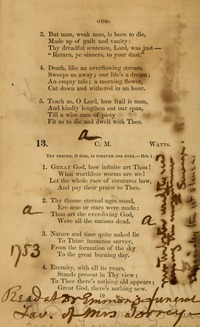 GOD.
3. But man, weak man, is born to die,
Made up of guilt and vanity:
Thy dreadful sentence, Lord, was just—
"Return, ye sinners, to your dust."
4. Death, like an overflowing stream,
Sweeps us away; our life's a dream;
An empty tale; a morning flower,
Cut down and withered in an hour.
5. Teach us, O Lord, how frail is man,
And kindly lengthen out our span,
Till a wise care of piety
Fit us to die and dwell with Thee.
a
13. C. M. WATTS.
THY THRONE, O GOD, IS FOREVER AND EVER.—Heb. 1
1. GREAT God, how infinite art Thou!
What worthless worms are we!
Let the whole race of creatures bow,
And pay their praise to Thee.
a
2. Thy throne eternal ages stood,
Ere seas or stars were made:
Thou art the ever-living God,
Were all the nations dead.
a
1753
3. Nature and time quite naked lie
To Thine immense survey,
From the formation of the sky
To the great burning day.
4. Eternity, with all its years,
Stands present in Thy view;
To Thee there's nothing old appears
Great God, there's nothing new.
10
Read at Dr Emmons's funeral
of Mrs